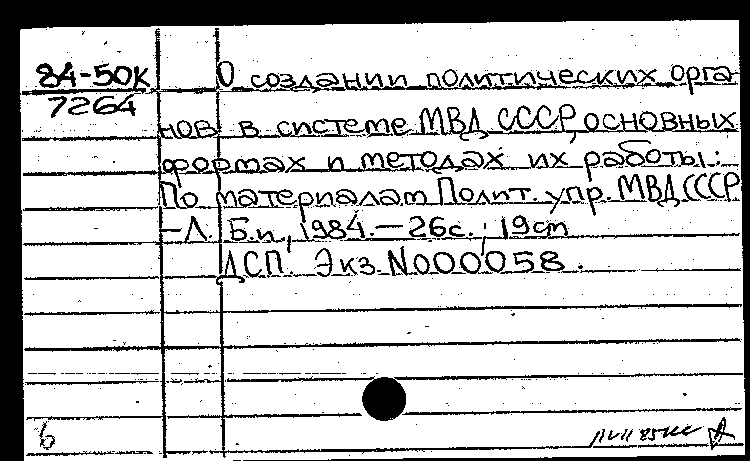 84-50К О создании политических орга-
7264
нов в системе МВД СССР, основных
формах и методах их работы:
По материалам Полит. упр. МВД СССР
-Л. Б.и., 1984.-26с.; 19см
ДСП. Экз. N000058.
б